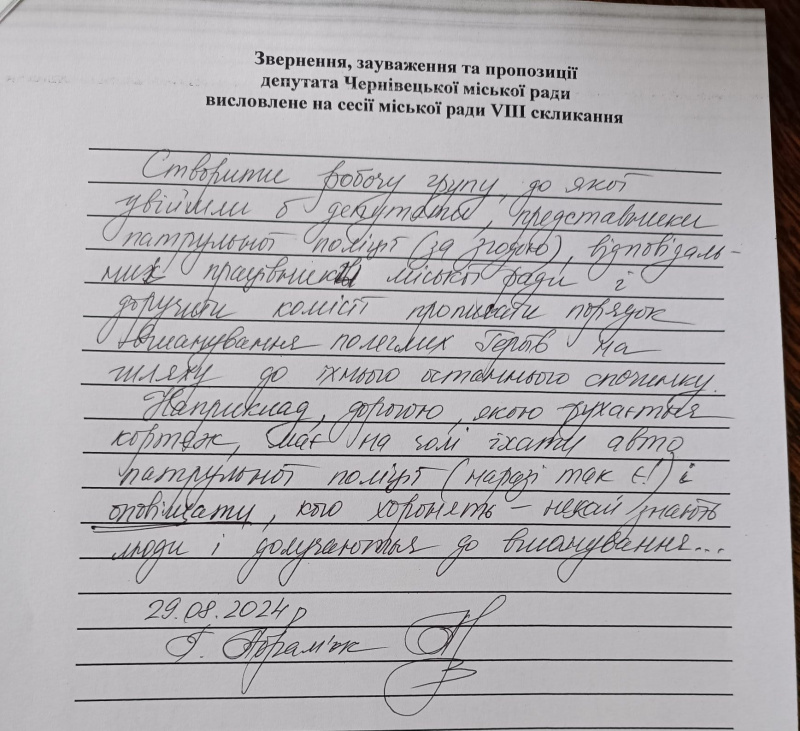 Звернення, зауваження та пропозиції
депутата Чернівецької міської ради
висловлене на сесії міської ради VIII скликання
Створити робочу групу, до якої
увійшли б депутати, представники
патрульної поліції (за згодою), відповідаль-
них працівників міської ради і
доручити комісії прописати порядок
вшанування полеглих Героїв на
шляху до їхнього останнього спочинку.
Наприклад, дорогою, якою рухається
кортеж, має на чолі їхати авто
патрульної поліції (наразі так є!) і
оповіщати, кого хоронять – нехай знають
люди і долучаються до вшанування...
29.08.2024 р
Г. Абрам'юк